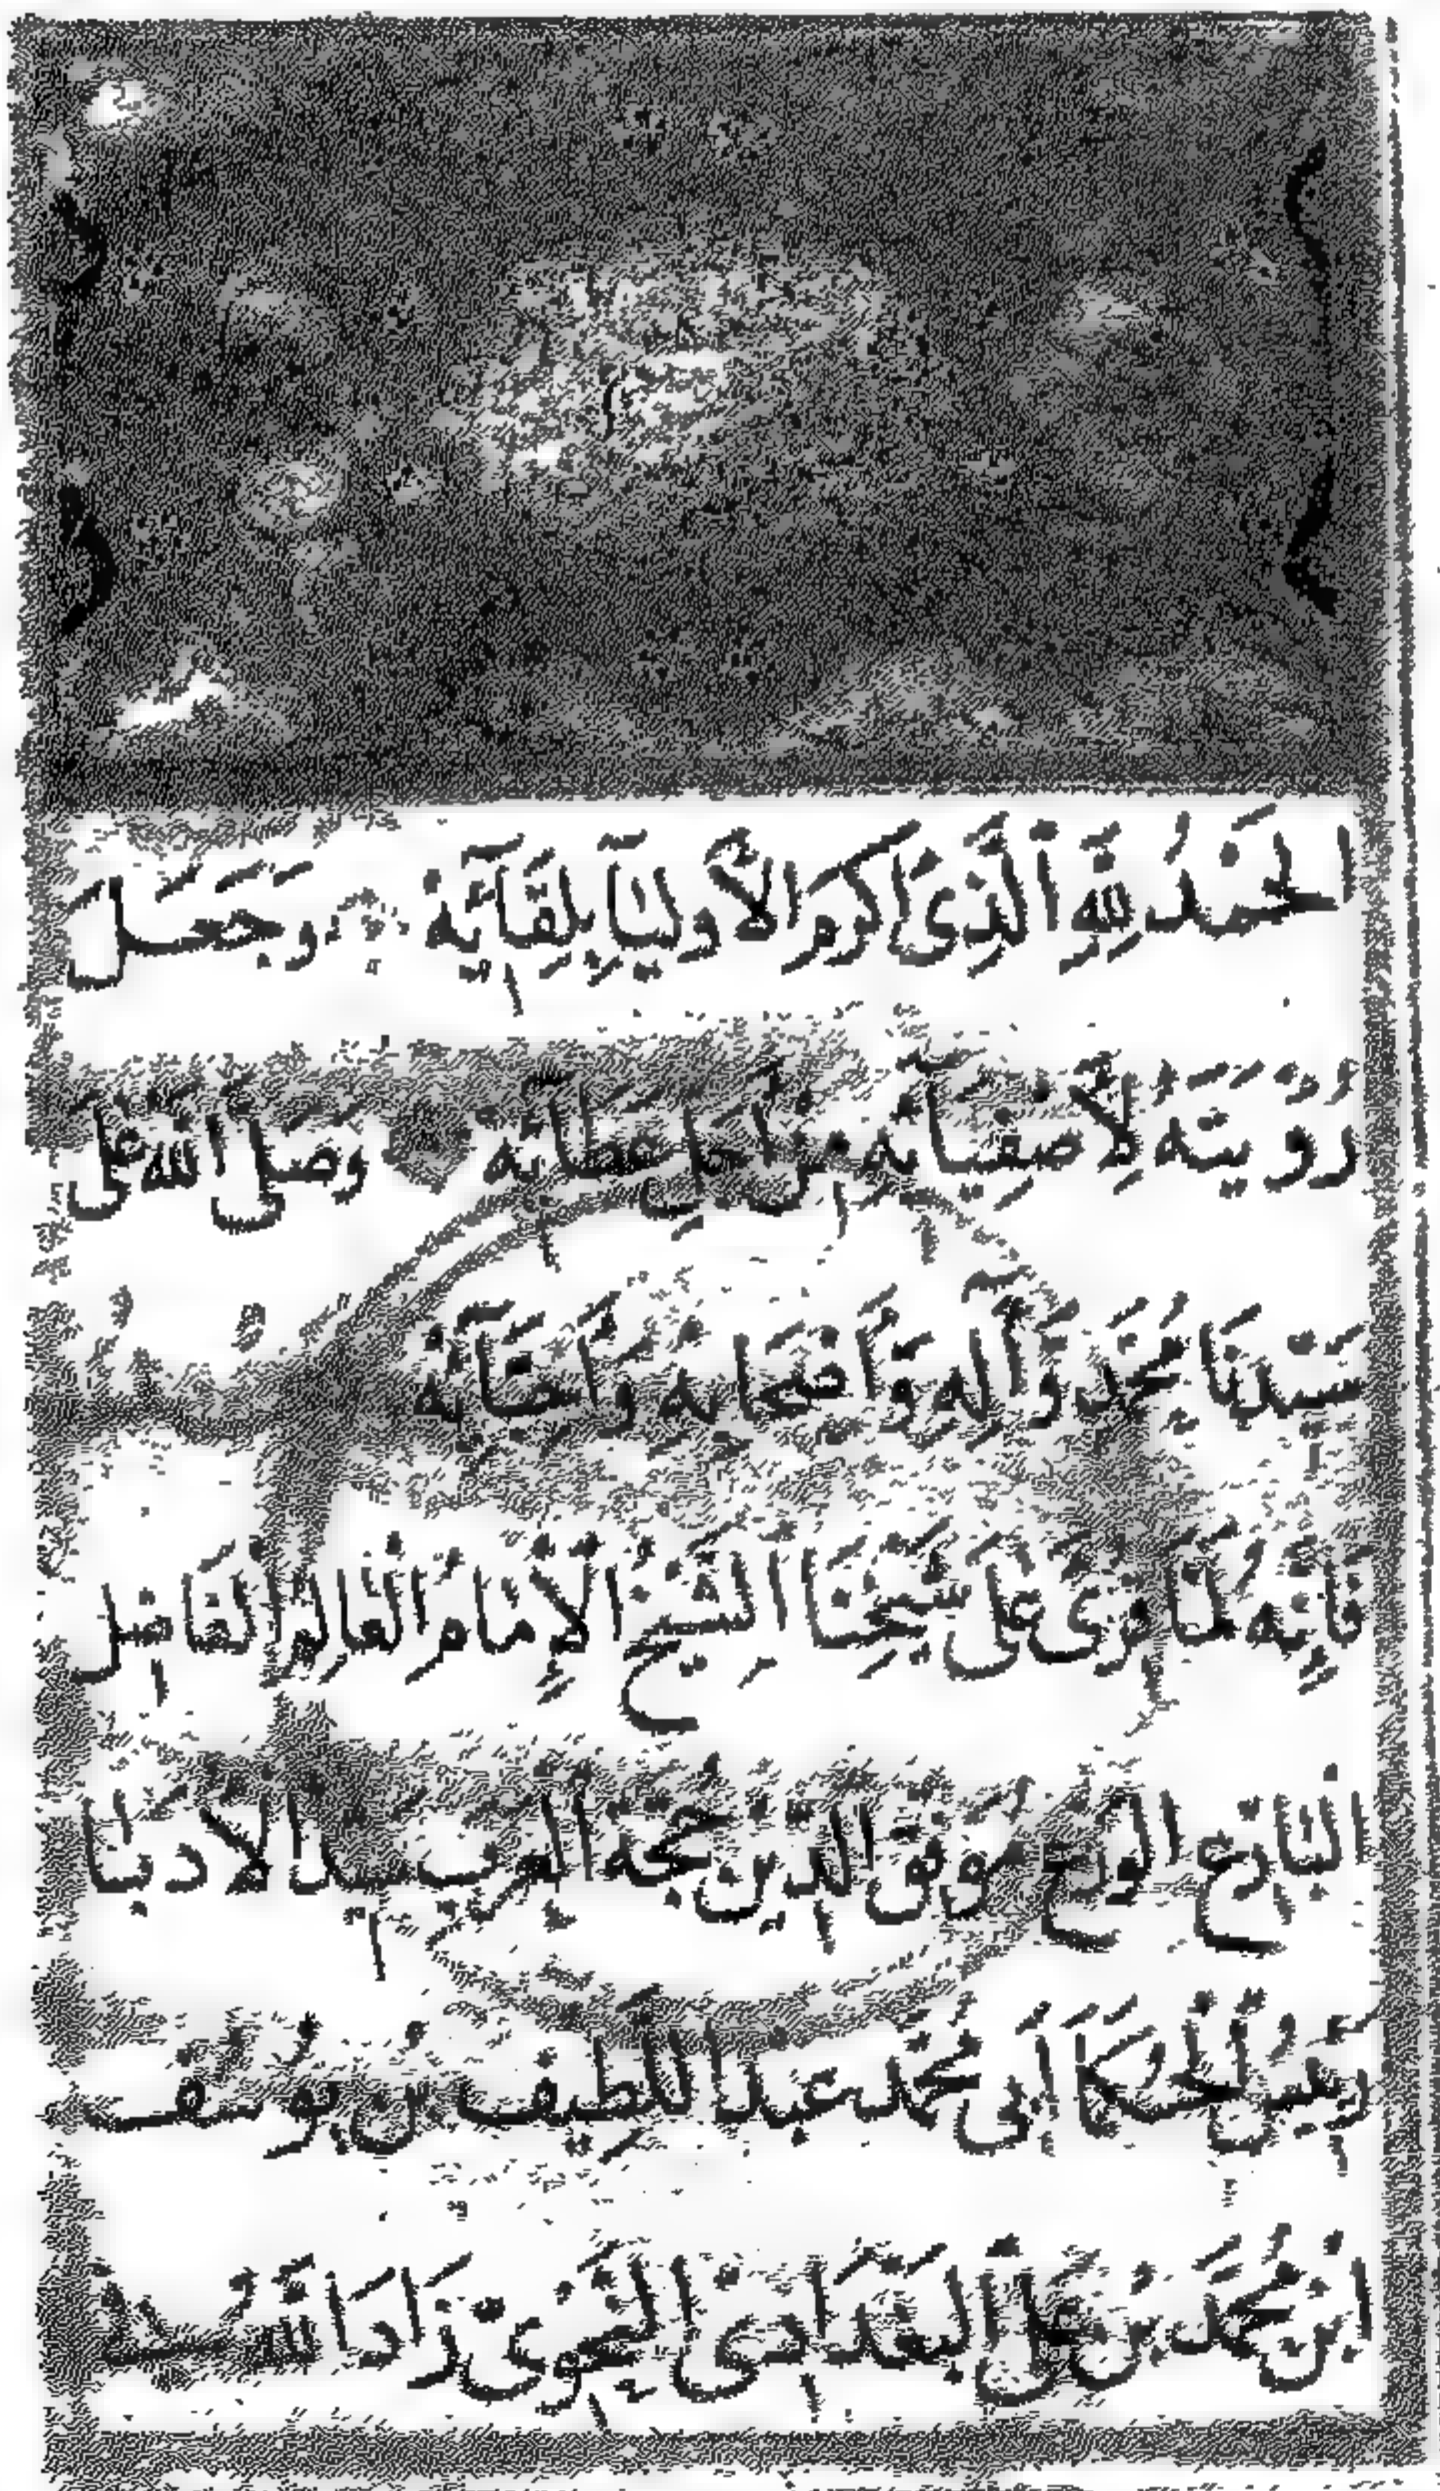 الْحَمْدُ لِلَّهِ الَّذِي أَكْرَمَ الْأَوْلِيَآءَ بِلِقَآئِهِ وَجَعَلَ
رُؤْيَتَهُ لِأَصْفِيَآئِهِ مِنْ أَجَلِّ عَطَآئِهِ وَصَلَّى اللَّهُ عَلَى
سَيِّدِنَا مُحَمَّدٍ وَآلِهِ وَأَصْحَابِهِ وَأَحِبَّآئِهِ
فَإِنَّهُ لَمَّا قُرِئَ عَلَى شَيْخِنَا الشَّيْخِ الْإِمَامِ الْعَالِمِ الْفَاضِلِ
الْبَارِعِ الْوَرِعِ مُوَفَّقِ الدِّينِ حُجَّةِ الْعَرَبِ سَيِّدِ الْأُدَبَا
رَئِيسِ الْحُكَمَا أَبِي مُحَمَّد عَبْدِ اللَّطِيفِ بْنِ يُوسُفَ
ابْنِ مُحَمَّدِ بْنِ عَلِيٍّ الْبَغْدَادِيِّ النَّحْوِيِّ زَادَ اللَّهُ